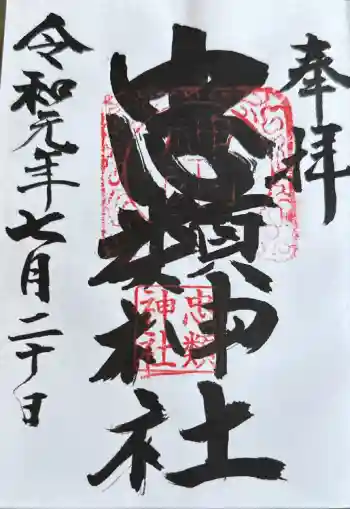 奉拝
忠類神社
忠類
神社
令和元年七月二十日